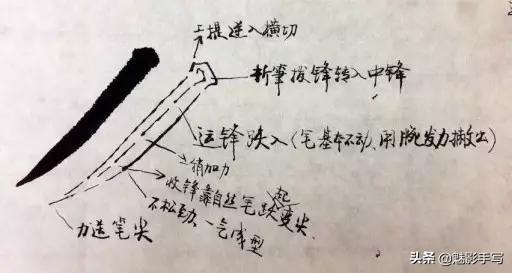 上提逆入横切
折笔拨锋转入中锋
运锋跌入(笔基本不动、用腕发力撇出)
稍加力
收锋靠自然笔跌起变尖
不松劲、一气成型
力送笔尖
头条 @魅影手写